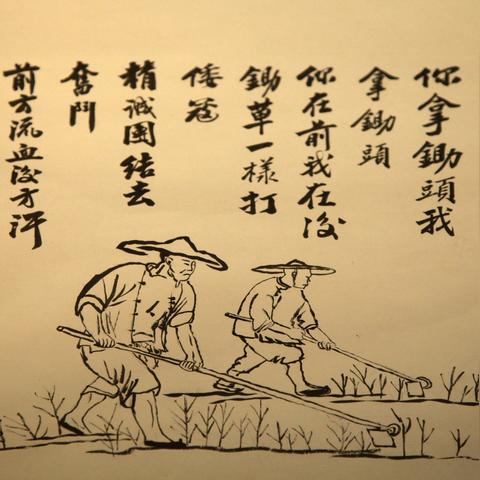 你拿鋤頭我
拿鋤頭
你在前我在後
鋤草一樣打
倭寇
精誠團结去
奮鬥
前方流血後方汗